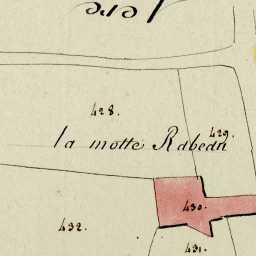 428.
429.
la motte Rabeau
430.
432.
431.